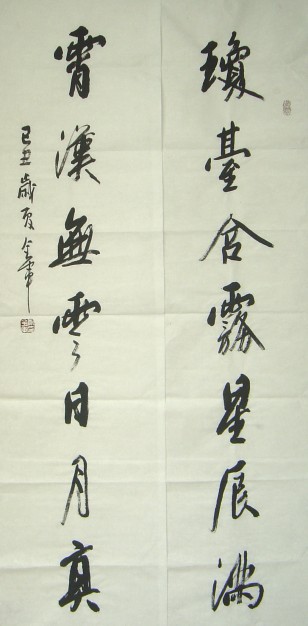 瓊臺含霧星辰滿
霄漢無雲日月真
己丑歲夏